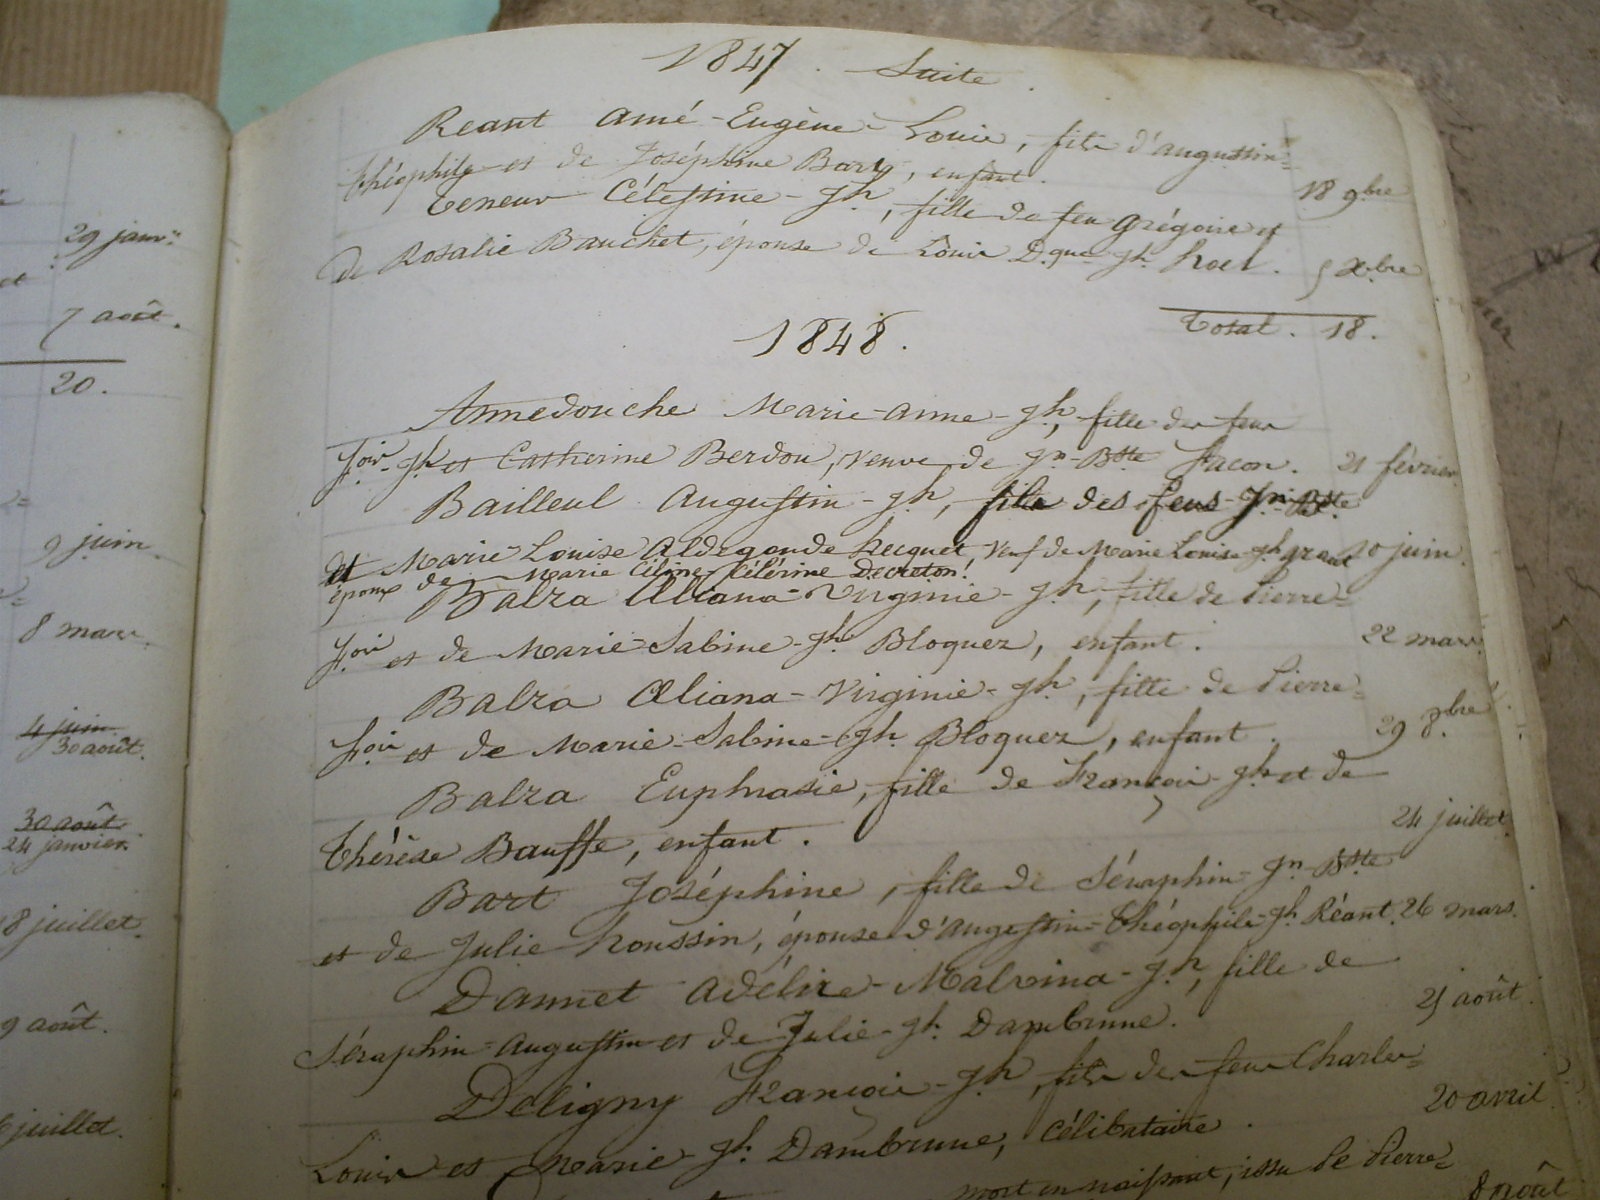 29 janv.
7 août.
20.
9 juin.
8 mars.
4 juin.
30 août.
30 août.
24 janvier.
8 juillet.
9 août.
juillet.
1847. Suite.
Réant Amé-Eugène-Louis, fils d'Augustin=
Théophile et de Joséphine Bart, enfant. 18 9bre
Teneur Célestine-Jh, fille de feu Grégoire et
de Rosalie Bauchet, épouse de Louis Dque Jh hoel. 5 Xbre
Total. 18.
1848.
Annedouche Marie-Anne-Jh, fille des feus
Fois-Jh et Catherine Berdou, veuve de Jn-Bte Facon. 21 février
Bailleul Augustin-Jh, fils des feus Jn-Bte
et Marie Louise Aldegonde hecquet, Veuf de Marie Louise Jh 10 juin
époux de Marie Céline Célérine Decreton!
Balza Œliana-Virginie-Jh, fille de Pierre=
Fois et de Marie-Sabine-Jh Bloquez, enfant. 22 mars
Balza Œliana-Virginie-Jh, fille de Pierre=
Fois et de Marie-Sabine-Jh Bloquez, enfant. 29 8bre
Balza Euphrasie, fille de François-Jh et de
Thérèse Bauffe, enfant. 24 juillet
Bart Joséphine, fille de Séraphin-Jn-Bte
et de Julie houssin, épouse d'Augustin-Théophile-Jh Réant. 26 mars.
Dannet Adélire-Malvina-Jh, fille de
Séraphin-Augustin et de Julie-Jh Dambrune. 25 août.
Deligny François-Jh, fils des feus Charles=
Louis et Marie-Jh Dambrune, célibataire. 20 avril
mort en naissant, issu de Pierre=
8 août